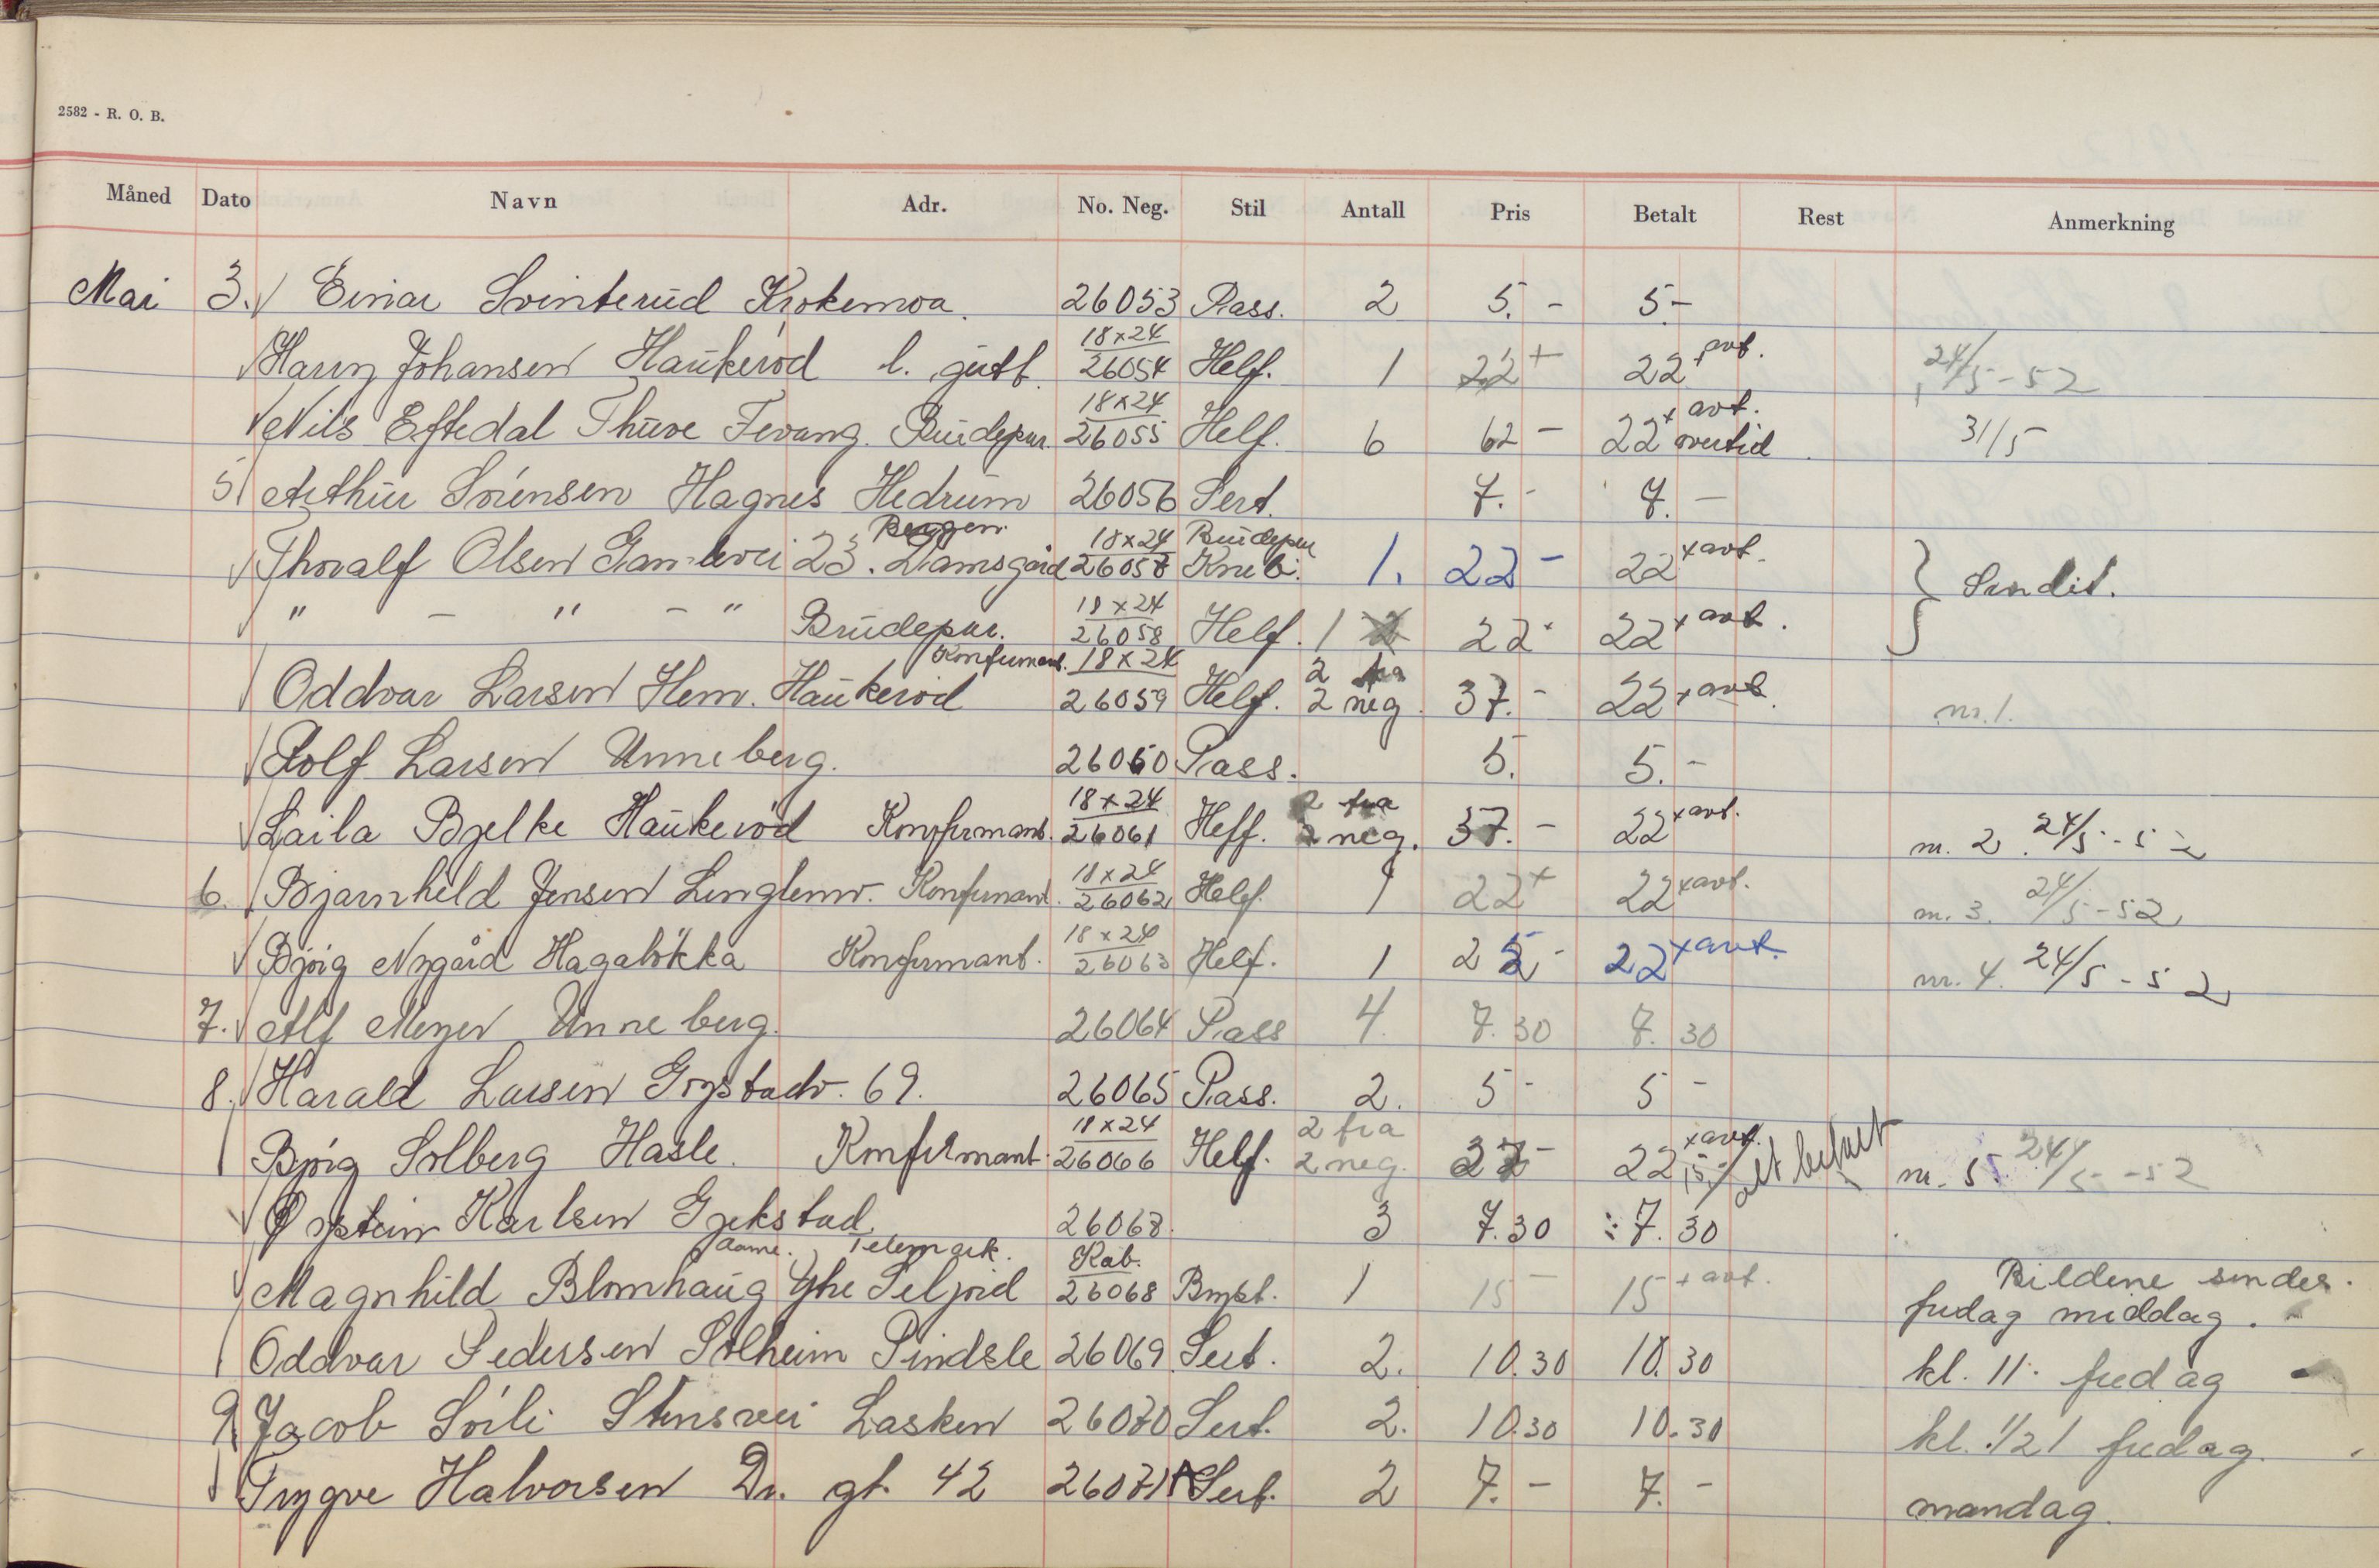 2582 - R. O. B.
Måned Dato Navn Adr. No. Neg. Stil Antall Pris Betalt Rest Anmerkning
Mai 3. Einar Svinterud Krokemoa. 26053 Pass. 2 5.- 5.-
Harry Johansen Haukeröd l. gutt. 18x24 26054 Helf. 1 22+ 22+ avt. 24/5-52
Nils Eftedal Thuve Fevang. Brudepar. 18x24 26055 Helf. 6 62- 22+ avt. overtid 31/5
5 Arthur Sörensen Hagnes Hedrum 26056 Sert. 7.- 7.-
Thoralf Olsen Gamlevei 23. Damsgård Bergen. 18x24 26057 Brudepar Knebi. 1. 22- 22+ avt. } Sendit.
" - " - " Brudepar. 18x24 26058 Helf. 1 22 22+ avt.
Oddvar Larsen Hem. Haukeröd Konfirmant. 18x24 26059 Helf. 2 fra 2 neg. 37.- 22+ avt. nr. 1.
Rolf Larsen Unneberg. 26060 Pass. 5. 5.-
Laila Bjelke Haukeröd Konfirmant. 18x24 26061 Helf. 2 fra 2 neg. 37.- 22+ avt. nr. 2. 24/5-52
6. Bjarnhild Jensen Lingelemv. Konfirmant. 18x24 26062 Helf. 1 22+ 22+ avt. nr. 3. 24/5-52
Björg Nygård Hagalökka Konfirmant. 18x24 26063 Helf. 1 22- 22+ avt. nr. 4. 24/5-52
7. Alf Meyer Unneberg. 26064 Pass 4. 7.30 7.30
8. Harald Larsen Gogstadv. 69. 26065 Pass. 2. 5- 5-
Björg Solberg Hasle. Konfirmant. 18x24 26066 Helf. 2 fra 2 neg. 37- 22+ avt. 15,- alt betalt nr. 5. 24/5-52
Øystein Karlsen Gjekstad. 26068. 3 7.30 7.30
Magnhild Blomhaug Yhe Seljord Telemark. Kab. 26068 Bryst. 1 15- 15+ avt. Bildene sendes.
fredag middag.
Oddvar Pedersen Solheim Pindsle 26069 Sert. 2. 10.30 10.30 kl. 11. fredag
9. Jacob Sörli Stensvei Lasken 26070 Sert. 2. 10.30 10.30 kl. 1/2 1 fredag.
Trygve Halvorsen Dr. gt. 42 26071 Sert. 2 7.- 7.- mandag.